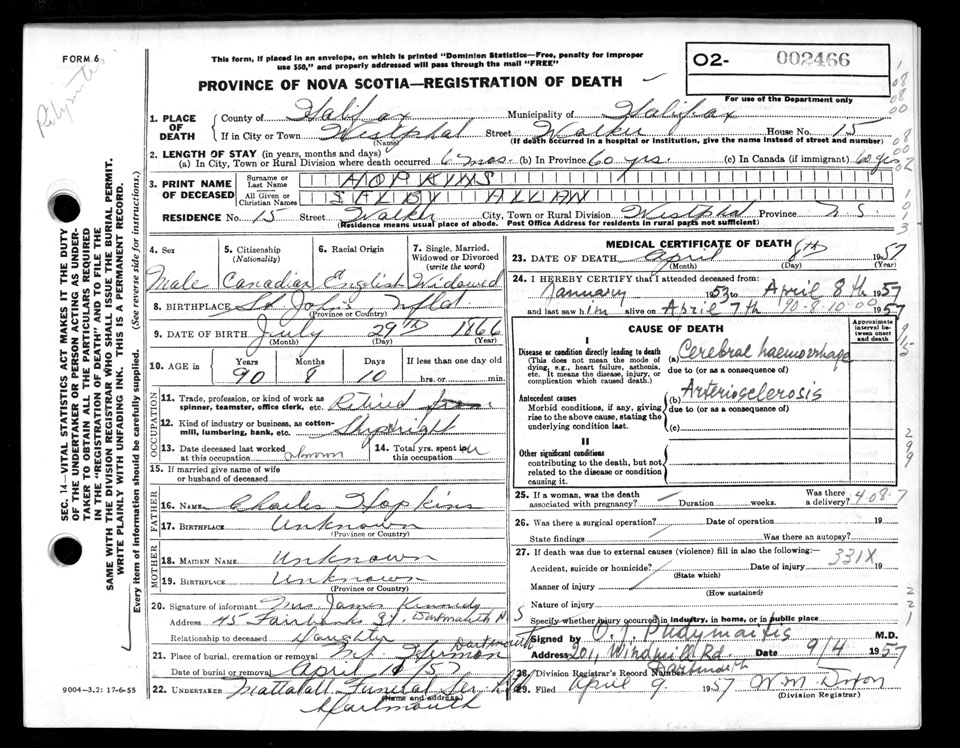 FORM 6
This form, if placed in an envelope, on which is printed "Dominion Statistics—Free, penalty for improper
use $50," and properly addressed will pass through the mail "FREE"
PROVINCE OF NOVA SCOTIA—REGISTRATION OF DEATH
O2- 002466
For use of the Department only
1. PLACE OF DEATH
County of Halifax Municipality of Halifax
If in City or Town Westphal Street Walker House No. 15
(Name) (If death occurred in a hospital or institution, give the name instead of street and number)
2. LENGTH OF STAY (in years, months and days)
(a) In City, Town or Rural Division where death occurred 6 mos. (b) In Province 60 yrs. (c) In Canada (if immigrant) 60 yrs
3. PRINT NAME OF DECEASED
Surname or Last Name HOPKINS
All Given or Christian Names SELBY ALLAN
RESIDENCE No. 15 Street Walker City, Town or Rural Division Westphal Province N. S.
(Residence means usual place of abode. Post Office Address for residents in rural parts not sufficient)
4. Sex 5. Citizenship (Nationality) 6. Racial Origin 7. Single, Married, Widowed or Divorced (write the word)
Male Canadian English Widowed
8. BIRTHPLACE St John's Nfld
(Province or Country)
9. DATE OF BIRTH July 29th 1866
(Month) (Day) (Year)
10. AGE in Years Months Days If less than one day old
90 8 10 hrs. or min.
OCCUPATION
11. Trade, profession, or kind of work as spinner, teamster, office clerk, etc. Retired from
12. Kind of industry or business, as cotton-mill, lumbering, bank, etc. Shipwright
13. Date deceased last worked at this occupation unknown 14. Total yrs. spent in this occupation
15. If married give name of wife or husband of deceased
FATHER
16. NAME Charles Hopkins
17. BIRTHPLACE Unknown
(Province or Country)
MOTHER
18. MAIDEN NAME Unknown
19. BIRTHPLACE Unknown
(Province or Country)
20. Signature of informant Mrs James Kennedy
Address 45 Fairbanks St. Dartmouth N. S
Relationship to deceased Daughter
21. Place of burial, cremation or removal Mt Hermon Dartmouth
Date of burial or removal April 10/57
22. UNDERTAKER Mattatall Funeral Ser Ltd
(Name and address)
Dartmouth
MEDICAL CERTIFICATE OF DEATH
23. DATE OF DEATH April 8th 1957
(Month) (Day) (Year)
24. I HEREBY CERTIFY that I attended deceased from:
January 1953 to April 8th 1957
and last saw him alive on April 7th 90-8-10-00 1957
CAUSE OF DEATH
Approximate interval between onset and death
I
Disease or condition directly leading to death
(This does not mean the mode of dying, e.g., heart failure, asthenia, etc. It means the disease, injury, or complication which caused death.)
(a) Cerebral haemorrhage
due to (or as a consequence of)
Antecedent causes
Morbid conditions, if any, giving rise to the above cause, stating the underlying condition last.
(b) Arteriosclerosis
due to (or as a consequence of)
(c)
II
Other significant conditions
contributing to the death, but not related to the disease or condition causing it.
25. If a woman, was the death associated with pregnancy? Duration weeks. Was there a delivery? 408.7
26. Was there a surgical operation? Date of operation 19
State findings Was there an autopsy?
27. If death was due to external causes (violence) fill in also the following:—
Accident, suicide or homicide? Date of injury 331X 19
(State which)
Manner of injury
(How sustained)
Nature of injury
Specify whether injury occurred in industry, in home, or in public place
Signed by O. J. Pudymaitis M.D.
Address 201, Windmill Rd. Date 9/4 1957
Dartmouth
28. Division Registrar's Record Number
29. Filed April 9 1957 W. M. Dixon
(Division Registrar)
SEC. 14—VITAL STATISTICS ACT MAKES IT THE DUTY
OF THE UNDERTAKER OR PERSON ACTING AS UNDER-
TAKER TO OBTAIN ALL THE PARTICULARS REQUIRED
IN THE "REGISTRATION OF DEATH" AND TO FILE THE
SAME WITH THE DIVISION REGISTRAR WHO SHALL ISSUE THE BURIAL PERMIT.
WRITE PLAINLY WITH UNFADING INK. THIS IS A PERMANENT RECORD.
Every item of information should be carefully supplied. (See reverse side for instructions.)
9004-3.2: 17-6-55